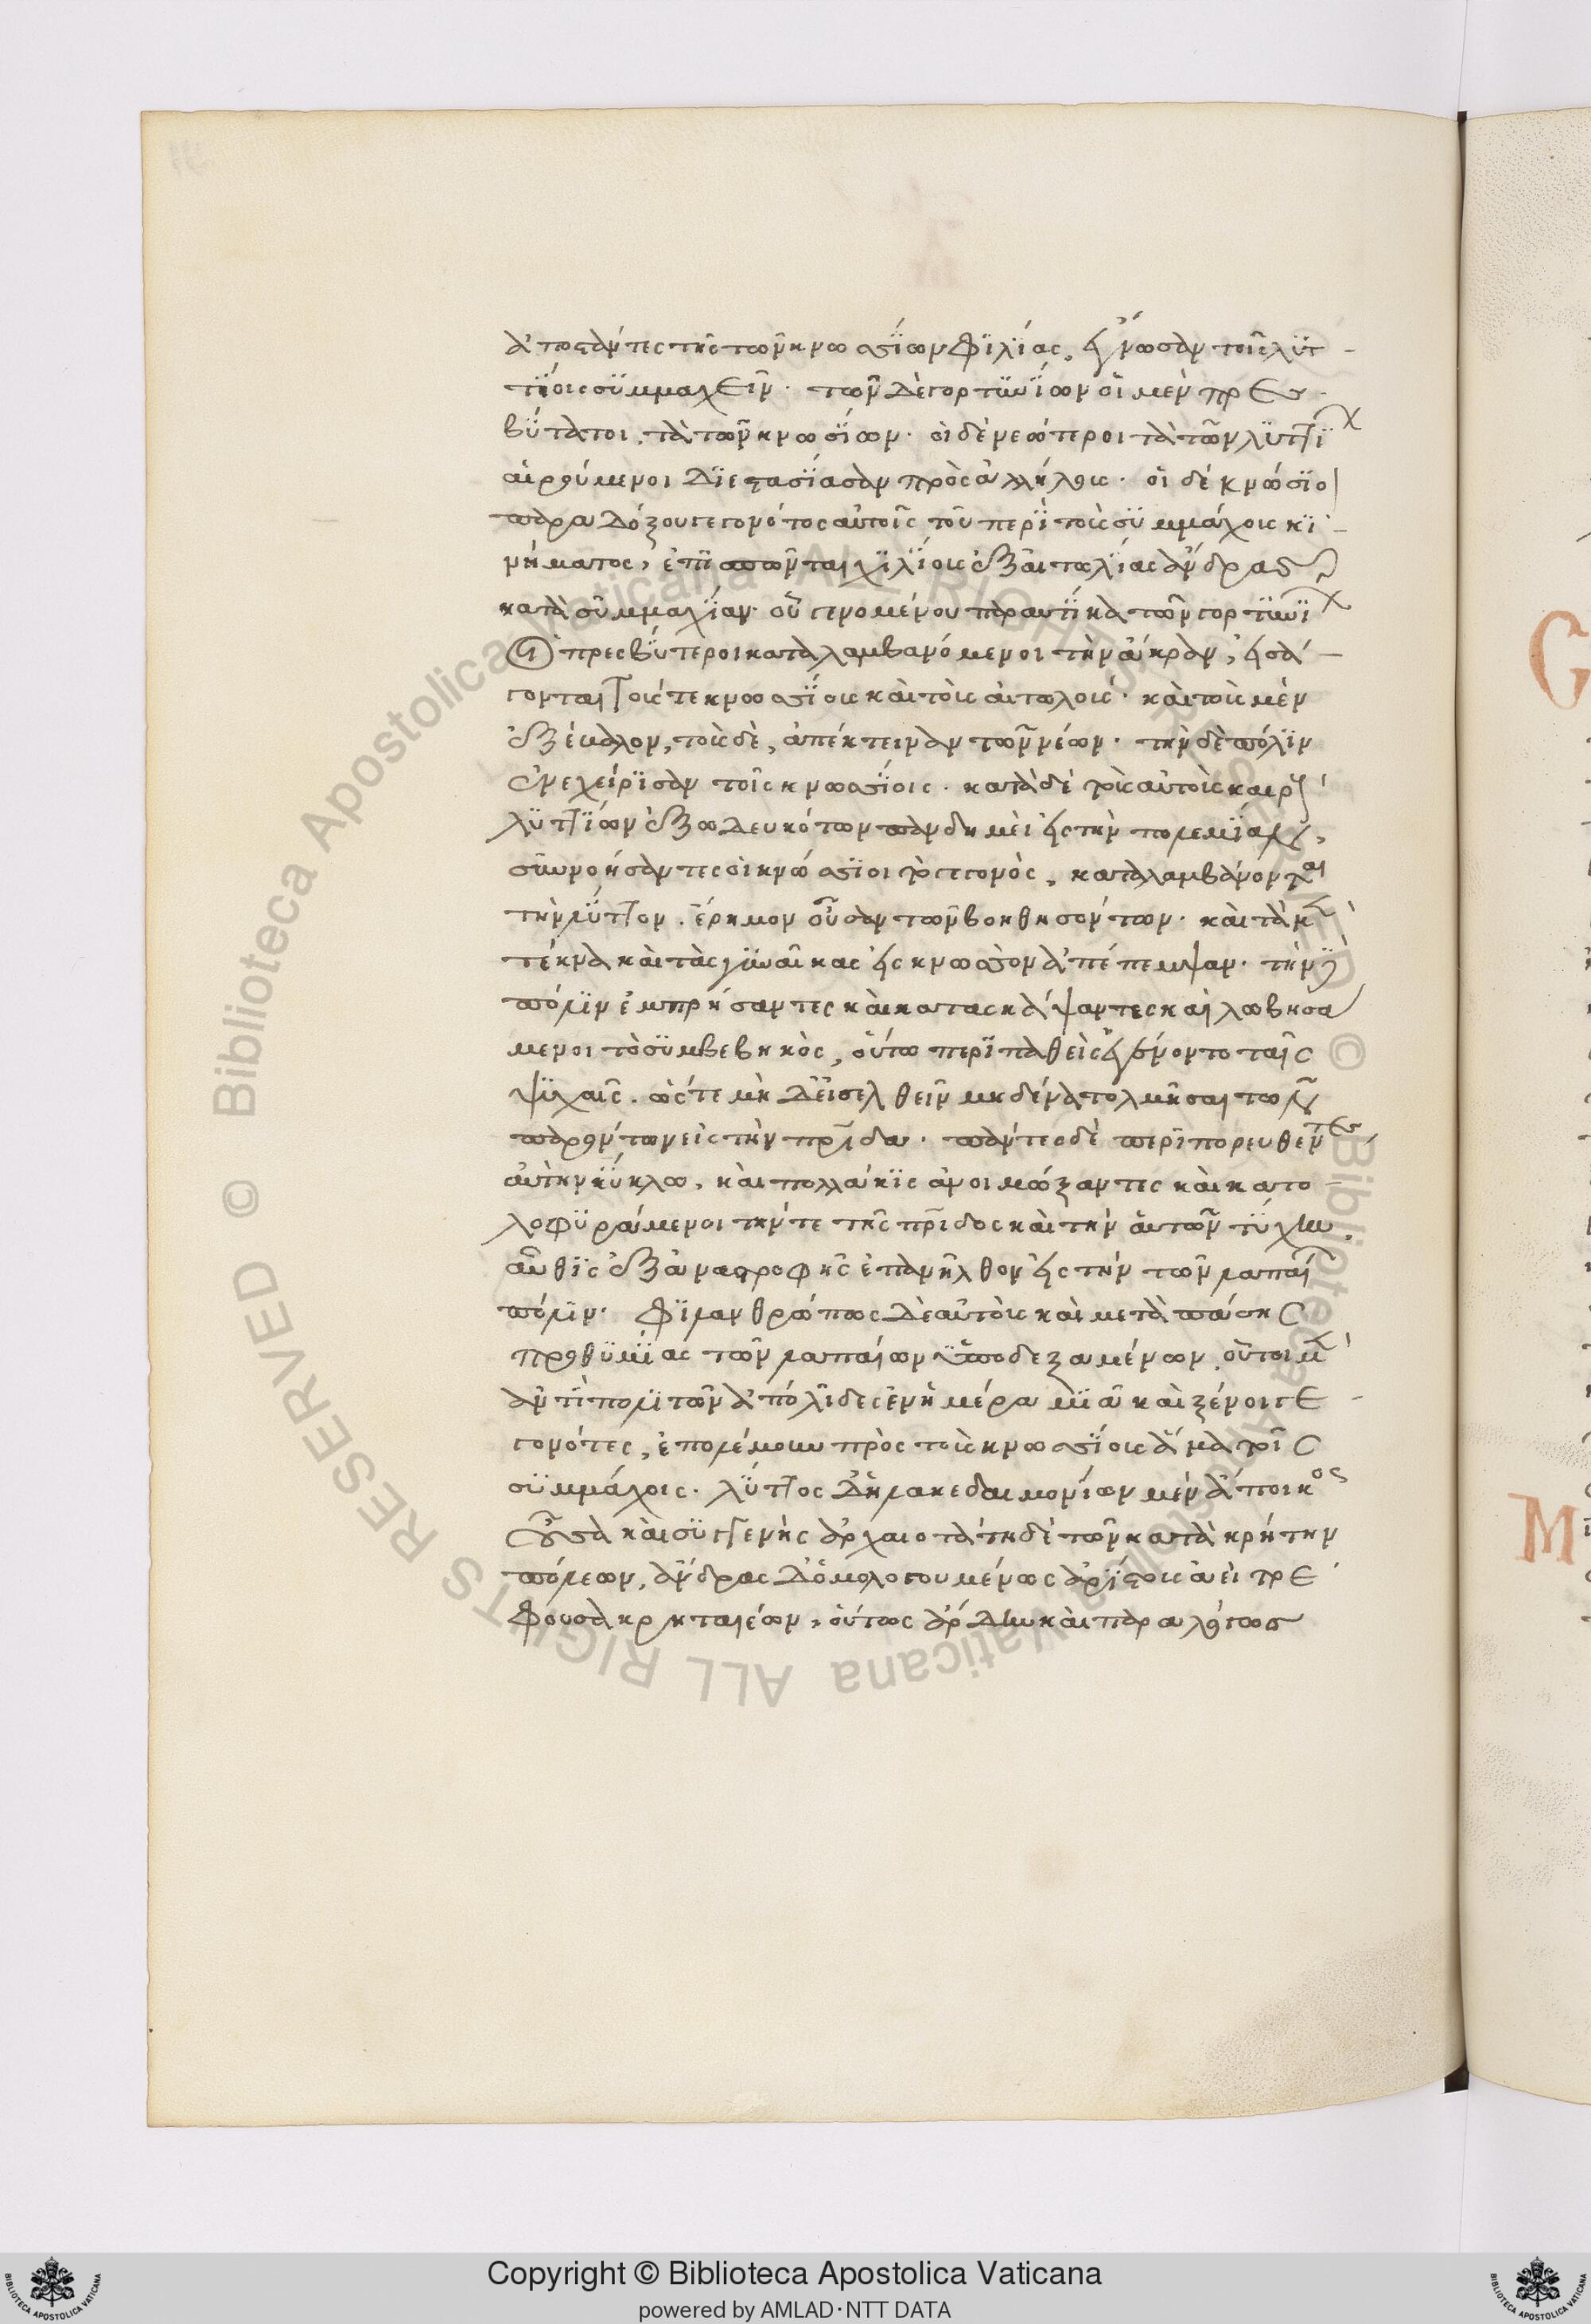 ἀποστάντες τῆς τῶν κνωσΐων φϊλίας, ἔγνωσαν τοῖς λϋτ
τΐοις σϋμμαχεῖν· τῶν δὲ γορτϋνΐων οἱ μὲν πρεσ
βΰτατοι, τὰ τῶν κνωσΐων· οἱ δὲ νεώτεροι τὰ τῶν λϋττΐ
αἱρούμενοι διεστασΐασαν πρὸς ἀλλήλους· οἱ δὲ κνώσϊοι
παραδόξου γεγονότος αὐτοῖς τοῦ περὶ τοὺς συμμάχους κϊ
νήματος, ἐπϊσπῶνται χϊλΐους ἐξ αἰτωλΐας ἄνδρας
κατὰ συμμαχΐαν· οὗ γενομένου παραυτΐκα τῶν γορτϋνΐ
οἱ πρεσβΰτεροι καταλαμβανόμενοι τὴν ἄκραν, εἰσά
γονται τούς τε κνωσΐους καὶ τοὺς αἰτωλούς· καὶ τοὺς μὲν
ἐξέβαλον, τοὺς δὲ, ἀπέκτειναν τῶν νέων· τὴν δὲ πόλϊν
ἐνεχείρϊσαν τοῖς κνωσΐοις· κατὰ δὲ τοὺς αὐτοὺς καιροὺς
λϋττΐων ἐξωδευκότων πανδημεὶ εἰς τὴν πολεμΐαν,
συννοήσαντες οἱ κνώσϊοι τὸ γεγονὸς, καταλαμβάνονται
τὴν λΰττον, ἔρημον οὖσαν τῶν βοηθησόντων· καὶ τὰ μὲν
τέκνα καὶ τὰς γϋναῖκας εἰς κνωσὸν ἀπέπεμψαν· τὴν δὲ
πόλϊν ἐμπρήσαντες καὶ κατασκάψαντες καὶ λωβησα
μενοι τὸ σϋμβεβηκὸς, οὕτω περϊπαθεῖς ἐγένοντο ταῖς
ψϋχαῖς. ὥστε μὴ δ' εἰσελθεῖν μηδένα τολμῆσαι τῶν
παρόντων εἰς τὴν πρίδα· πάντες δὲ περϊπορευθέντες
αὐτὴν κΰκλω, καὶ πολλάκϊς ἀνοιμώξαντες καὶ κατο
λοφϋράμενοι τήν τε τῆς πρίδος καὶ τὴν αὑτῶν τΰχην,
αὖθϊς ἐξ ἀναστροφῆς ἐπανῆλθον εἰς τὴν τῶν λαπαί
πόλϊν· φϊλανθρώπως δὲ αὐτοὺς καὶ μετὰ πάσης
προθϋμΐας τῶν λαπαίων ὑποδεξαμένων, οὗτοι μὲν
ἀντὶ πολϊτῶν ἀπόλϊδες ἐν ἡμέρα μϊᾶ καὶ ξένοι γε
γονότες, ἐπολέμουν πρὸς τοὺς κνωσΐους ἅμα τοῖς
σϋμμάχοις· λΰττος δ' ἡ λακεδαιμονΐων μὲν ἄποικος
οὖσα καὶ σϋγγενὴς ἀρχαιοτάτη δὲ τῶν κατὰ κρήτην
πόλεων, ἄνδρας δ' ὁμολογουμένως ἀρΐστους ἀεὶ τρέ
φουσα κρηταιέων, οὕτως ἄρδην καὶ παραλόγως